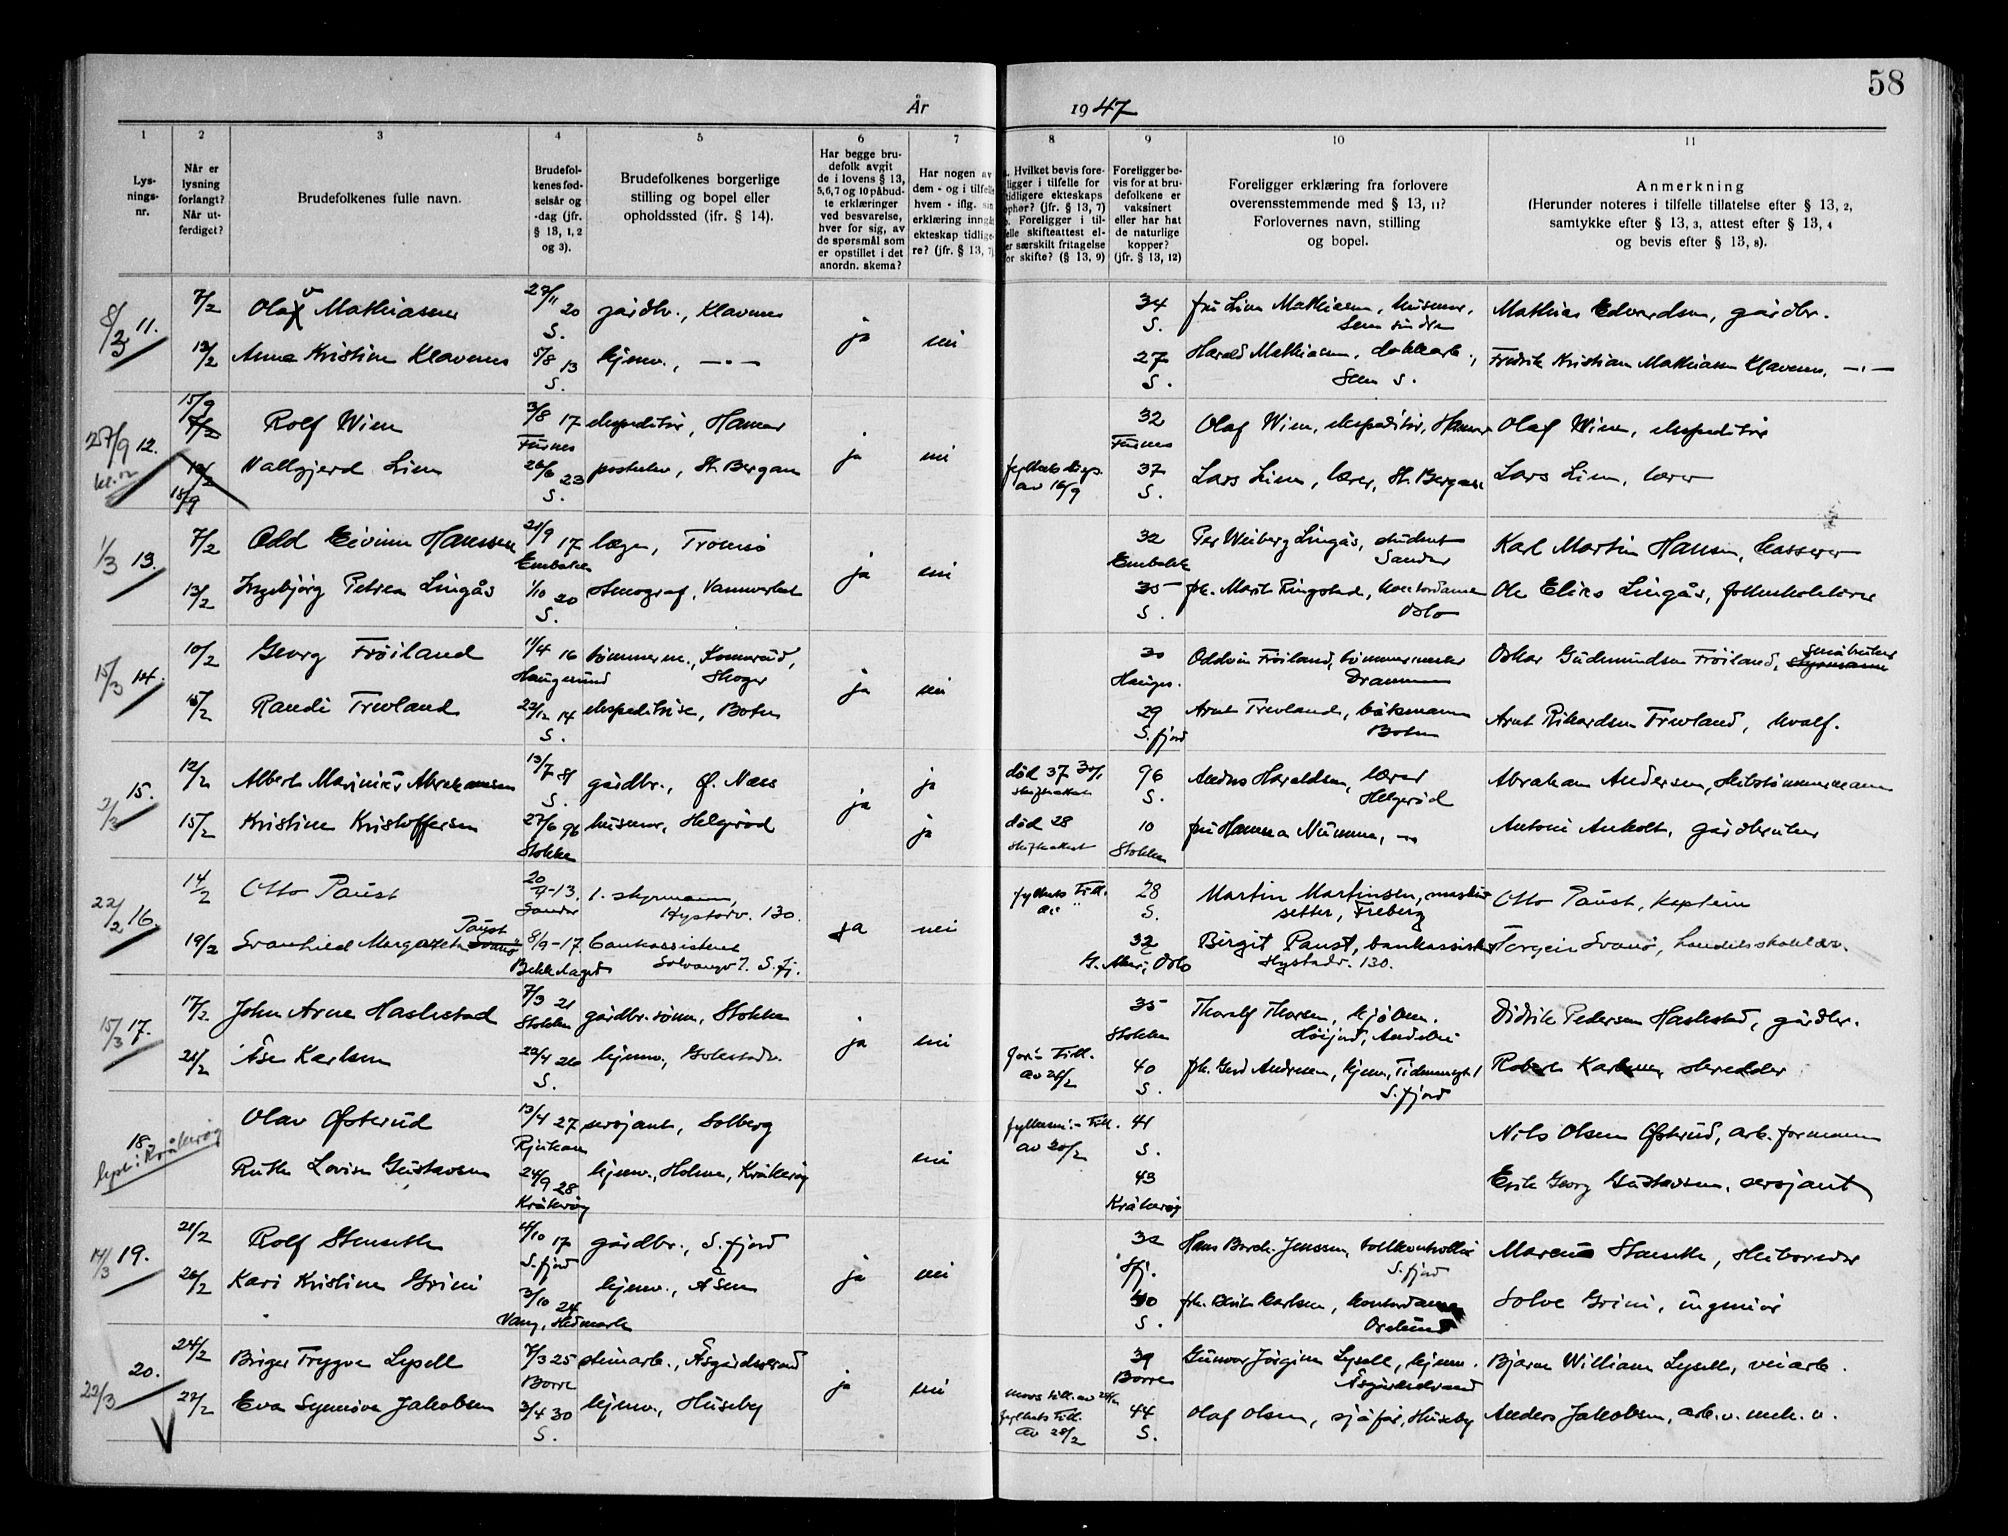 58
År 1947
1 2 3 4 5 6 7 8 9 10 11
Lysningsnr.
Når er lysning forlangt? Når utferdiget?
Brudefolkenes fulle navn.
Brudefolkenes fødselsår og -dag (jfr. § 13, 1, 2 og 3).
Brudefolkenes borgerlige stilling og bopel eller opholdssted (ifr. § 14).
Har begge brudefolk avgit de i lovens § 13, 5,6,7 og 10 påbudte erklæringer ved besvarelse, hver for sig, av de spørsmål som er opstillet i det anordn. skema?
Har nogen av dem - og i tilfelle hvem - iflg. sin erklæring inngått ekteskap tidligere? (jfr. § 13, 7)
. Hvilket bevis foreligger i tilfelle for tidligere ekteskaps ophør? (jfr. § 13, 7) . Foreligger i tilfelle skifteattest eller særskilt fritagelse for skifte? (§ 13, 9)
Foreligger bevis for at brudefolkene er vaksinert eller har hat de naturlige kopper? (jfr. § 13, 12)
Foreligger erklæring fra forlovere overensstemmende med § 13, 11? Forlovernes navn, stilling og bopel.
Anmerkning (Herunder noteres i tilfelle tillatelse efter § 13, 2, samtykke efter § 13, 3, attest efter § 13, 4 og bevis efter § 13, 8).
8/3 11. 7/2 Olav Mathiasen 27/11 20 S. gårdbr., Klavenes ja nei 34 S. fru Lina Mathiasen, husmor, Sem søndre Mathias Edvardsen, gårdbr.
13/2 Anna Kristine Klavenes 5/8 13 S. hjemv., — " — 27 S. Harald Mathiasen, Sem s. Fredrik Kristian Mathiasen Klavenes, — " —
27/9 12. 15/9 7/2 Rolf Wien 3/8 17 Furnes ekspeditør, Hamar ja nei 32 Furnes Olaf Wien, ekspeditør, Hamar Olaf Wien, ekspeditør
13/2 18/9 Vallgjerd Lien 26/6 23 S. St. Bergan av 16/9 37 S. Lars Lien, lærer, St. Bergan Lars Lien, lærer
1/3 13. 7/2 Odd Eivinn Hanssen 21/9 17 læge, Tromsø ja nei 32 Per Wiiberg Lingås, student Sandar Karl Martin Hansen, kasserer
13/2 Ingebjørg Petrea Lingås 1/10 20 S. stenograf, 35 S. frk. Marit Ringstad, kontordame Oslo Ole Elias Lingås, folkeskolelærer
15/3 14. 10/2 Georg Frøiland 11/4 16 Haugesund tømmerm., Skoger ja nei 30 Hauges. Oddvin Frøiland, tømmermester Drammen Oskar Gudmundsen Frøiland, styrmann småbruker
15/2 Randi Trevland 22/12 14 S. ekspeditrise, Boten 29 S.fjord Arnt Trevland, båtsmann Boten Arnt Rikardsen Trevland, hvalf.
2/3 15. 12/2 Albert Marinius Abrahamsen 13/7 81 S. gårdbr., Ø. Næs ja ja død 37 30/1 skifteattest 96 S. Anders Haraldsen, lærer Helgerød Abraham Andersen, skibstømmermann
15/2 Kristine Kristoffersen 27/6 96 Stokke husmor, Helgerød ja død 28 skifteattest 10 Stokke fru Hanna Numme, — " Antoni Anholt, gårdbruker
22/2 16. 14/2 Otto Paust 20/7-13. Sandar 1. styrmann, Hystadv. 130. ja nei fylkets Till. 28 S. Martin Martinsen, maskinsetter, Freberg Otto Paust, kaptein
19/2 Svanhild Margareth Svanø Paust 8/9-17. Bekkelaget bankassistent Solvangv 7. S.fj. 32 V. Aker, Oslo Birgit Paust, bankassistent Hystadv. 130. Torgeir Svanø, handelsskolelær.
15/3 17. 17/2 John Arne Haslestad 7/3 21 Stokke gårdbr.sønn, Stokke ja nei 35 Stokke Thoralf Thorsen, Høijord, Andebu Didrik Pedersen Haslestad, gårdbr.
21/2 Åse Karlsen 22/4 26 S. hjemv., Till. av 21/2 40 S. frk. Gerd Andresen, hjemv., S.fjord Robert Karlsen, skredder
18. lyst i Kråkerøy Olav Østerud 13/4 27 Rjukan sersjant, Solberg nei Till. av 20/2 41 S. Nils Olsen Østerud, arb.formann
Ruth Lovise Gustavsen 24/9 28 Kråkerøy hjemv., Holme, Kråkerøy 43 Kråkerøy Erik Georg Gustavsen, sersjant
14/3 19. 21/2 Rolf Stenseth 4/10 17 S.fjord gårdbr., S.fjord ja nei 32 Sfj. Hans Borch. Jenssen, tollkontrollør S.fjord Marcus Stenseth, skibsreder
26/2 Kari Kristine Grini 3/10 24 Vang, Hedmark hjemv., Åsen 40 S. Carlsen, kontordame Solve Grini, ingeniør
22/3 20. 24/2 Birger Trygve Lysell 7/3 25 Borre steinarb., Åsgårdstrand ja nei 39 Borre Gunvor Jørgine Lysell, hjemv. Åsgårdstrand Bjarne William Lysell, veiarb.
27/2 Eva Synnøve Jakobsen 3/4 30 S. hjemv., Huseby mors till. av fylkets Till. av 28/2 44 S. Olaf Olsen, sjåfør, Huseby Anders Jakobsen, arb. v. mek. v.